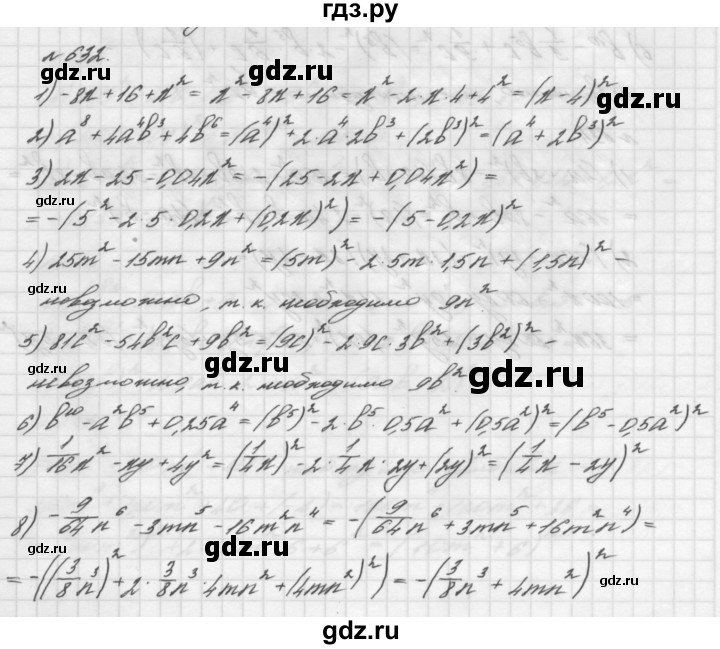 гдз.ру
№632.
1) -8x+16+x² = x²-8x+16 = x²-2·x·4+4² = (x-4)²
2) a⁸+4a⁴b³+4b⁶ = (a⁴)²+2·a⁴·2b³+(2b³)² = (a⁴+2b³)²
3) 2x-25-0,04x² = -(25-2x+0,04x²) =
= -(5²-2·5·0,2x+(0,2x)²) = -(5-0,2x)²
4) 25m²-15mn+9n² = (5m)²-2·5m·1,5n+(1,5n)² -
невозможно, т.к. необходимо 9n²
5) 81c²-54b²c+9b² = (9c)²-2·9c·3b²+(3b²)² -
невозможно, т.к. необходимо 9b².
6) b¹⁰-a²b⁵+0,25a⁴ = (b⁵)²-2·b⁵·0,5a²+(0,5a²)² = (b⁵-0,5a²)²
7) 1/16x²-xy+4y² = (1/4x)²-2·1/4x·2y+(2y)² = (1/4x-2y)²
8) -9/64n⁶-3mn⁵-16m²n⁴ = -(9/64n⁶+3mn⁵+16m²n⁴) =
= -((3/8n³)²+2·3/8n³·4mn²+(4mn²)²) = -(3/8n³+4mn²)²
gdz.ru